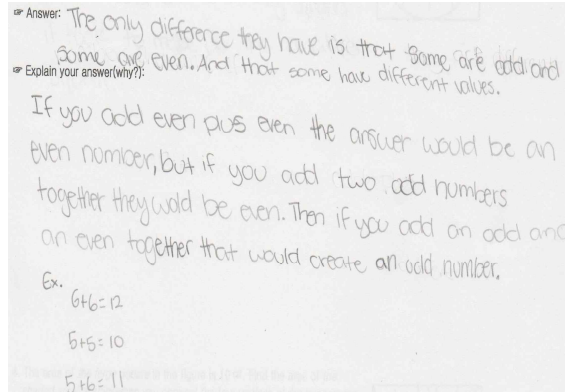 ☞ Answer: The only difference they have is that some are odd and
some are even. And that some have different values.
☞ Explain your answer(why?):
If you add even plus even the answer would be an
even nomber, but if you add two odd numbers
together they wold be even. Then if you add an odd and
an even together that would create an odd number.
Ex.
6+6=12
5+5=10
5+6=11